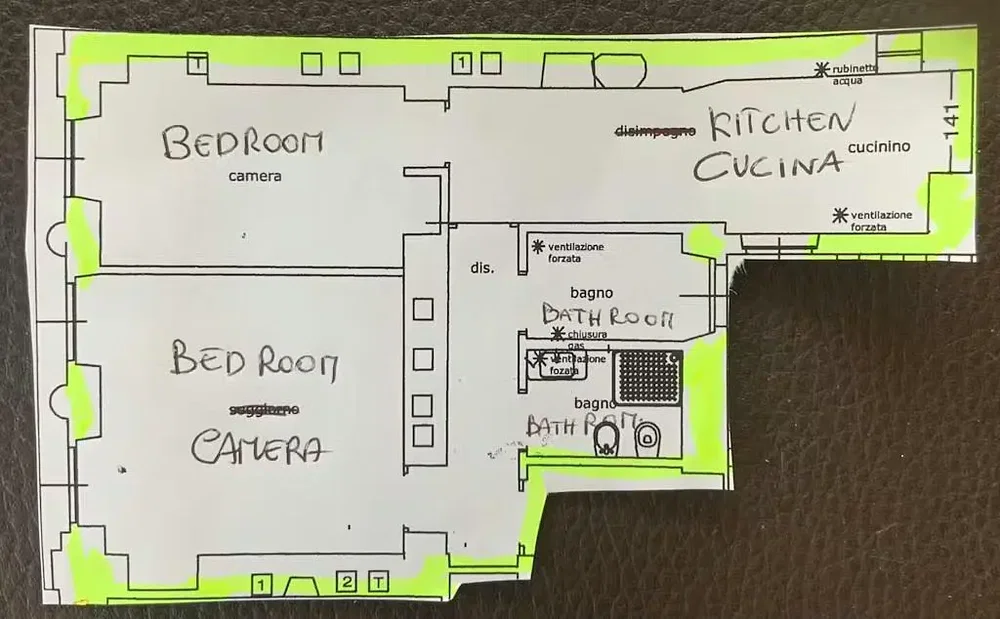 T
1
rubinetto
acqua
disimpegno KITCHEN
CUCINA cucinino
141
BEDROOM
camera
ventilazione
forzata
ventilazione
forzata
dis.
bagno
BATHROOM
chiusura
gas
ventilazione
fozata
bagno
BATHROOM
BEDROOM
soggiorno
CAMERA
1
2
T